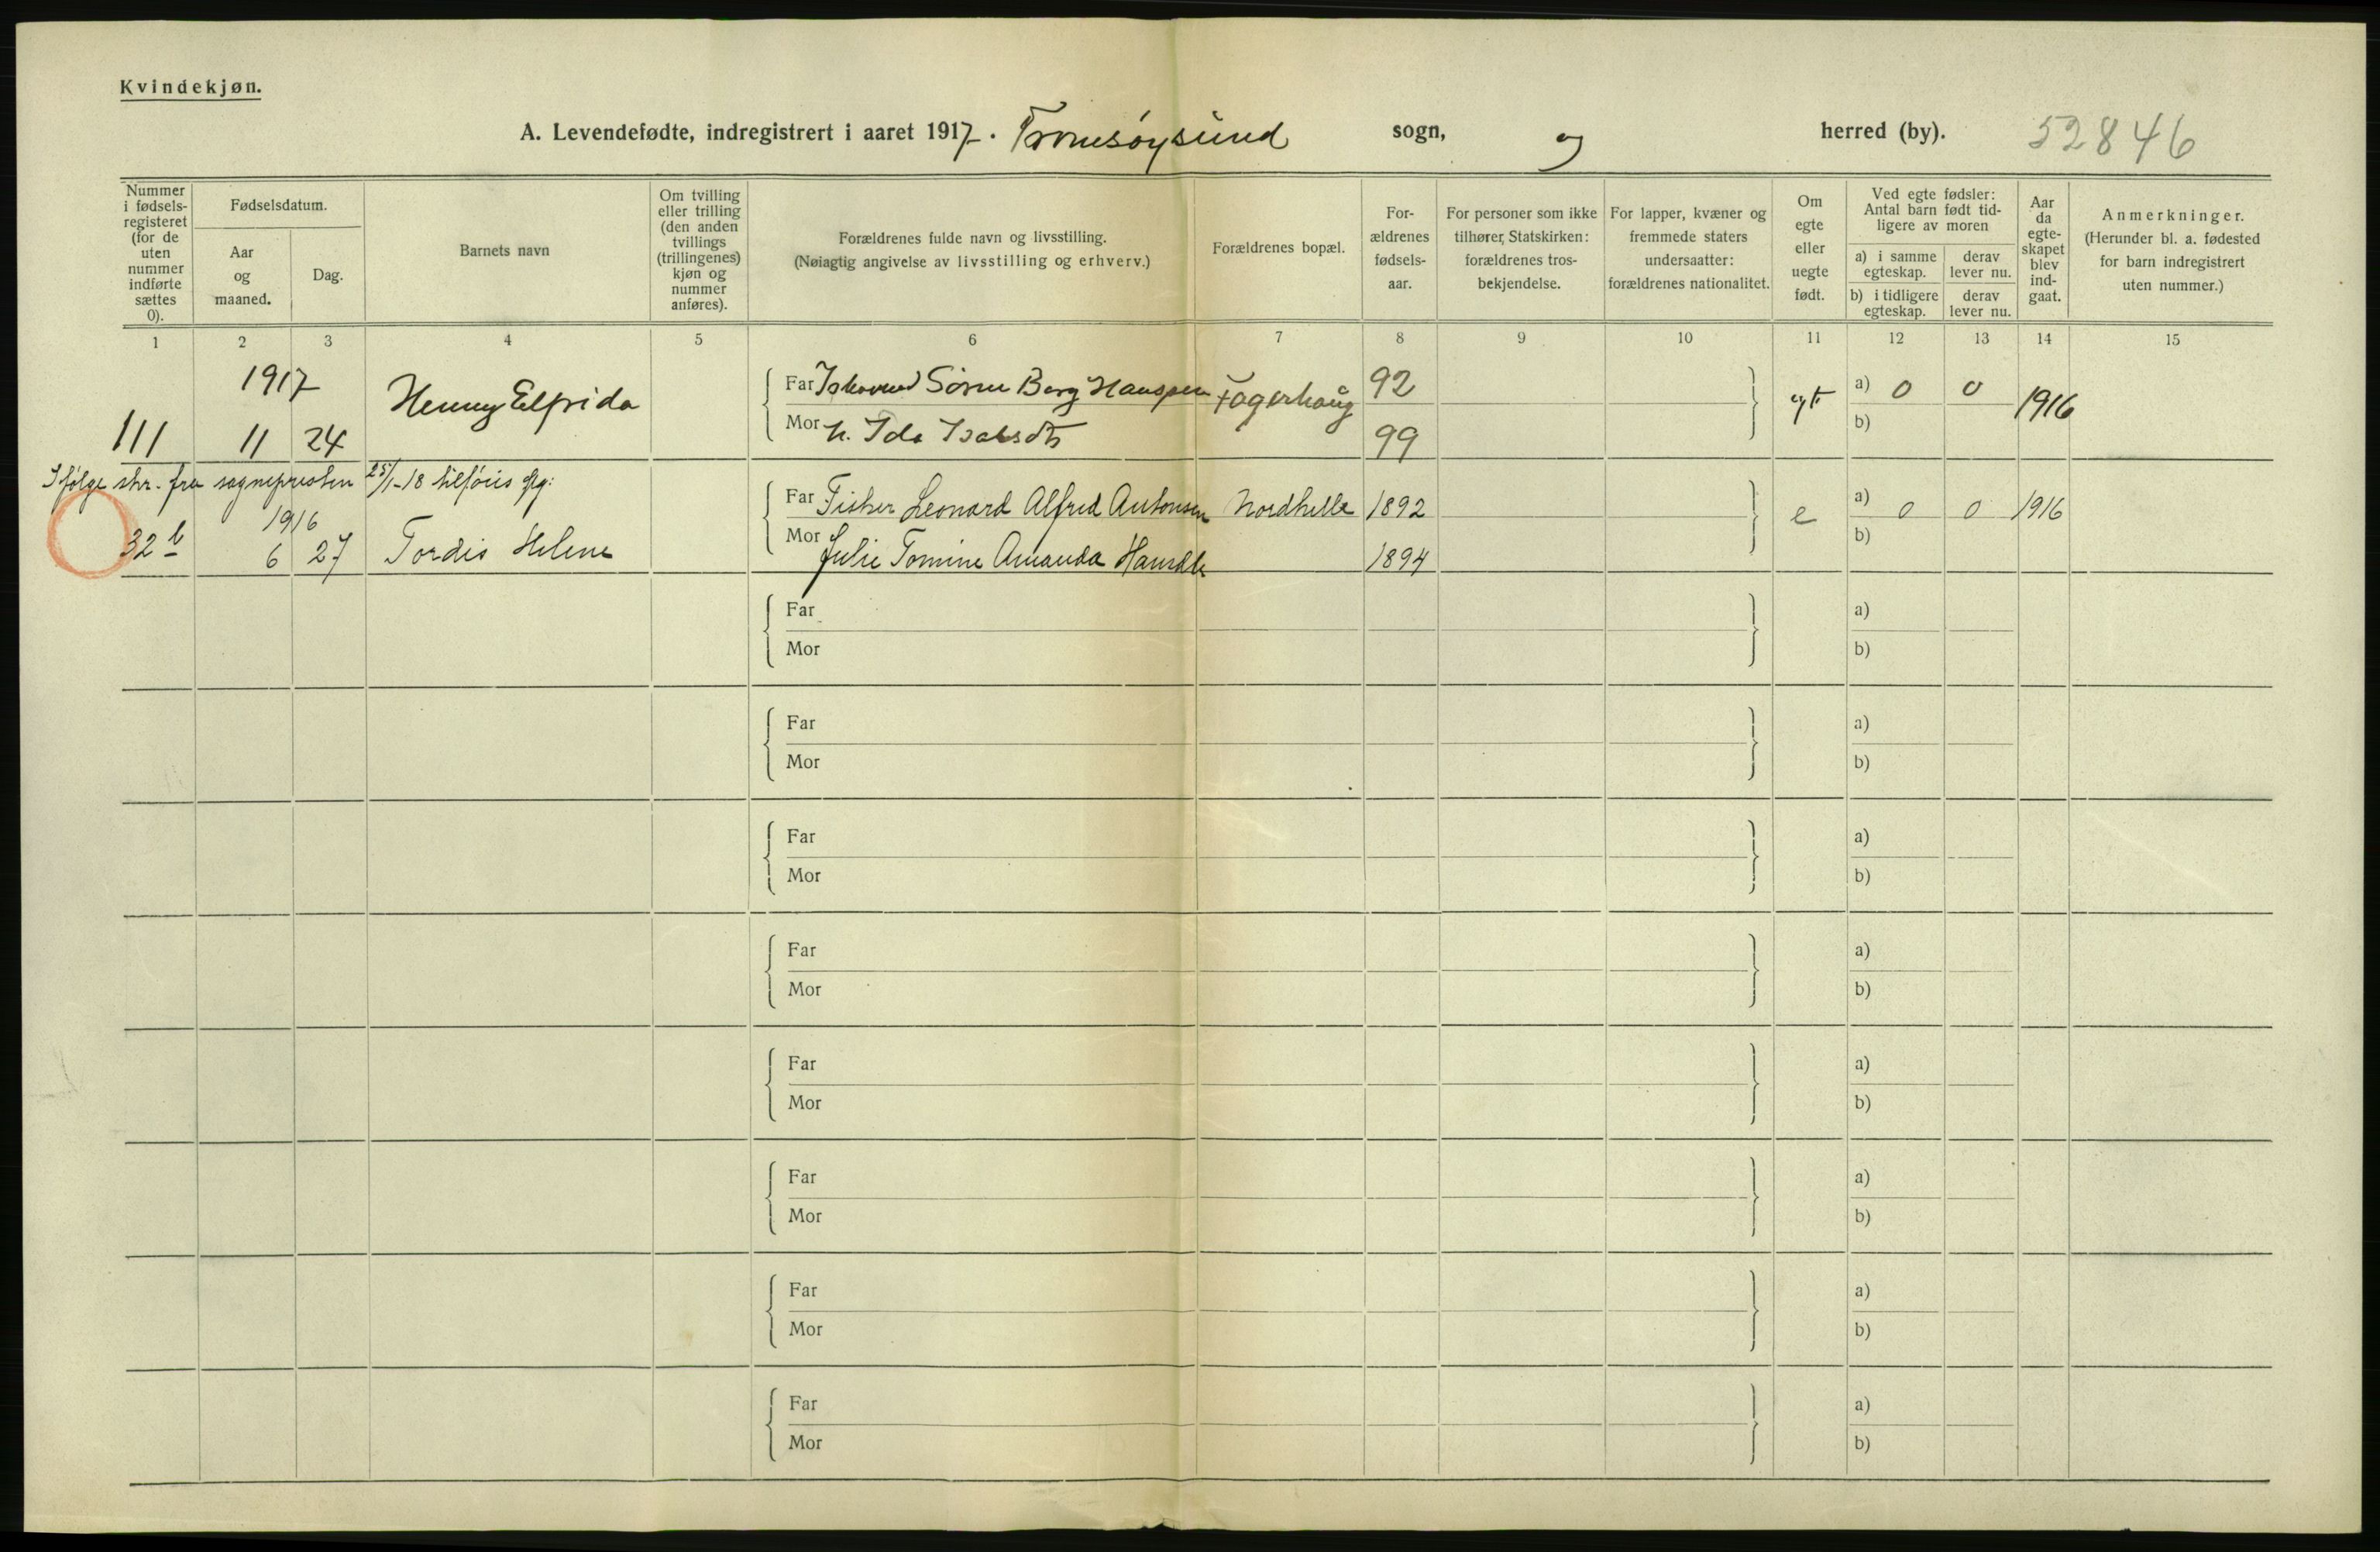 Kvindekjøn.
A. Levendefødte, indregistrert i aaret 1917. Tromsøysund sogn, og herred (by). 52846
Nummer i fødsels-registeret (for de uten nummer indførte sættes 0).
Fødselsdatum.
Aar og maaned.
Dag.
Barnets navn
Om tvilling eller trilling (den anden tvillings (trillingenes) kjøn og nummer anføres).
Forældrenes fulde navn og livsstilling.
(Nøiagtig angivelse av livsstilling og erhverv.)
Forældrenes bopæl.
For-ældrenes fødsels-aar.
For personer som ikke tilhører Statskirken: forældrenes tros-bekjendelse.
For lapper, kvæner og fremmede staters undersaatter: forældrenes nationalitet.
Om egte eller uegte født.
Ved egte fødsler: Antal barn født tid-ligere av moren
a) i samme egteskap.
derav lever nu.
b) i tidligere egteskap.
derav lever nu.
Aar da egte-skapet blev ind-gaat.
Anmerkninger.
(Herunder bl. a. fødested for barn indregistrert uten nummer.)
1 2 3 4 5 6 7 8 9 10 11 12 13 14 15
1917
111 11 24 Henny Elfrida
Far Søren Berg Hanssen Fagerhaug 92
Mor h. Ida 99
egte a) 0 0 1916
b)
Ifølge skr. fra sognepresten 25/1-18 tilføies flg:
1916
32 b 6 27 Tordis Helene
Far Fisker Leonard Alfred Antonsen Nordhelle 1892
Mor Julie Tomine Amanda 1894
e a) 0 0 1916
b)
Far a)
Mor b)
Far a)
Mor b)
Far a)
Mor b)
Far a)
Mor b)
Far a)
Mor b)
Far a)
Mor b)
Far a)
Mor b)
Far a)
Mor b)